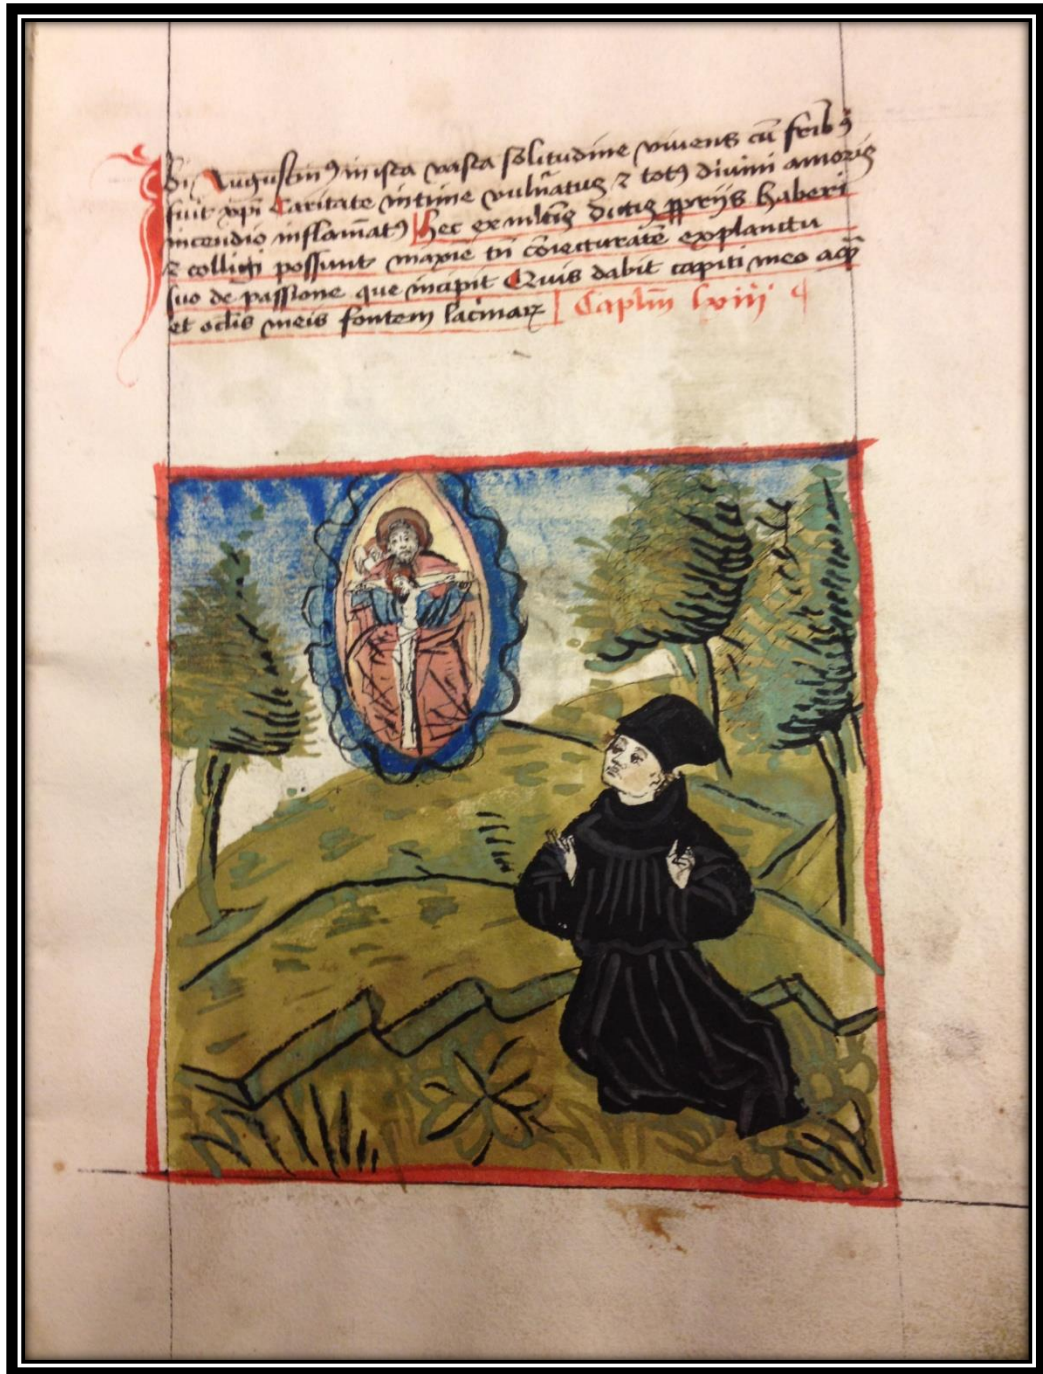 Ibi Augustin9 in ista vasta solitudine vivens cū frīb9
fuit xp̄i Caritate intime vuln̄atus ⁊ tot9 divini amoris
incendio inflam̄at9 Hec ex mltis dictis ꝓprijs haberi
⁊ colligi possunt maxīe tn̄ cōiecturatē ex planctu
suo de passione que incipit Quis dabit capiti meo aqā
et oclis meis fontem lacīmaꝝ Caplm̄ lxiij